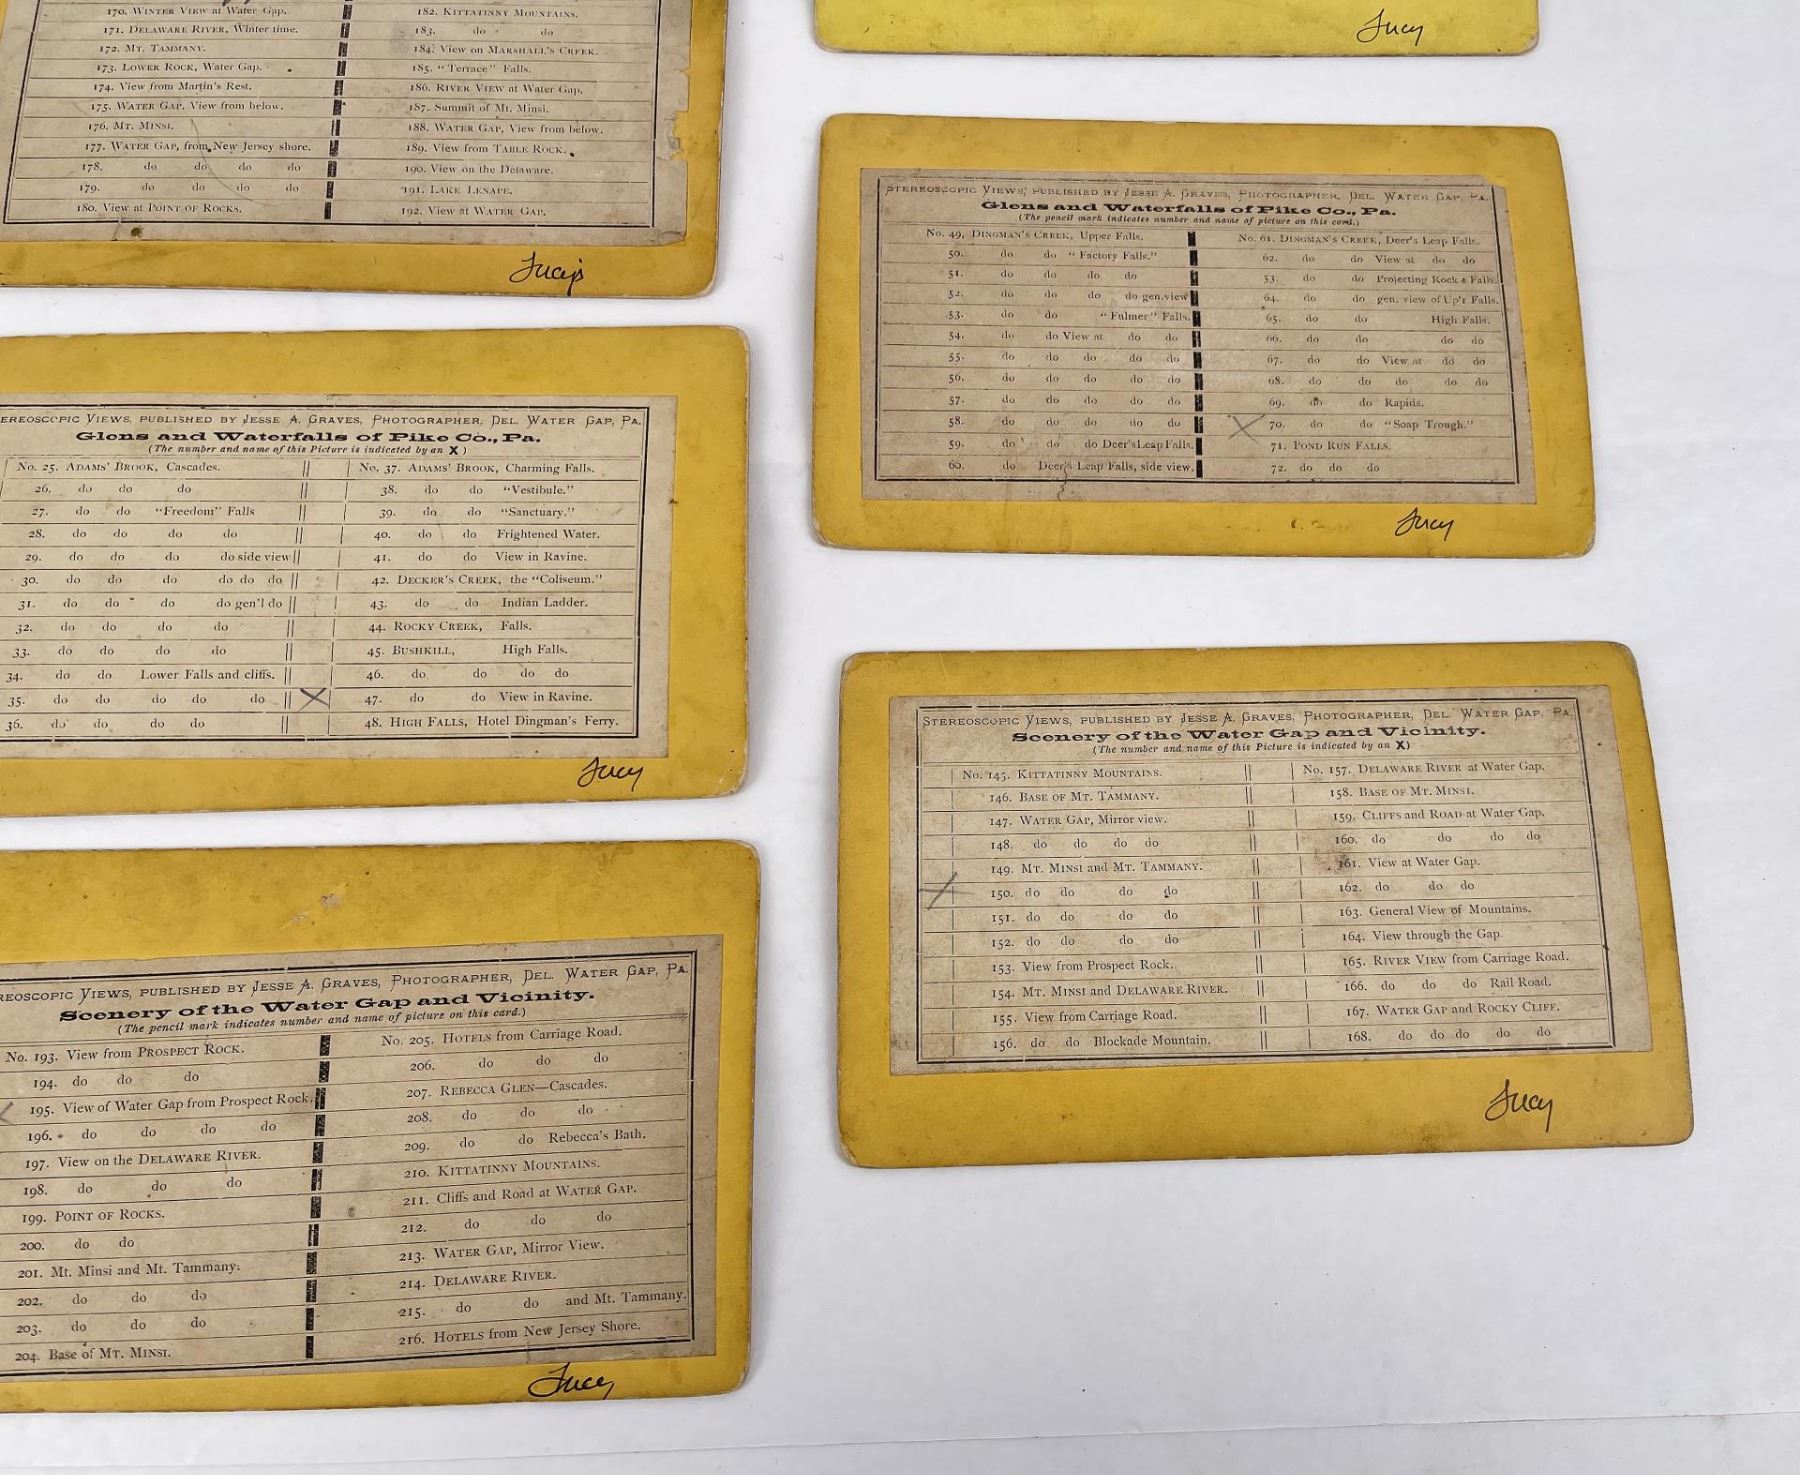 170. WINTER VIEW at Water Gap.
171. DELAWARE RIVER, Winter time.
172. MT. TAMMANY.
173. LOWER ROCK, Water Gap.
174. View from Martin's Rest.
175. WATER GAP, View from below.
176. MT. MINSI.
177. WATER GAP, from New Jersey shore.
178. do do do do
179. do do do do
180. View at POINT OF ROCKS.
182. KITTATINNY MOUNTAINS.
183. do do
184. View on MARSHALL'S CREEK.
185. "Terrace" Falls.
186. RIVER VIEW at Water Gap.
187. Summit of Mt. Minsi.
188. WATER GAP, View from below.
189. View from TABLE ROCK.
190. View on the Delaware.
191. LAKE LENAPE.
192. View at WATER GAP.
Lucy's
Lucy
STEREOSCOPIC VIEWS, PUBLISHED BY JESSE A. GRAVES, PHOTOGRAPHER, DEL. WATER GAP, PA.
Glens and Waterfalls of Pike Co., Pa.
(The pencil mark indicates number and name of picture on this card.)
No. 49. DINGMAN'S CREEK, Upper Falls.
50. do do "Factory Falls."
51. do do do do
52. do do do do gen. view
53. do do "Fulmer" Falls.
54. do do View at do do
55. do do do do do
56. do do do do do
57. do do do do do
58. do do do do do
59. do do do Deer's Leap Falls.
60. do Deer's Leap Falls, side view.
No. 61. DINGMAN'S CREEK, Deer's Leap Falls.
62. do do View at do do
53. do do Projecting Rock & Falls.
64. do do gen. view of Up'r Falls.
65. do do High Falls.
66. do do do do
67. do do View at do do
68. do do do do do
69. do do Rapids.
X 70. do do "Soap Trough."
71. POND RUN FALLS.
72. do do do
Lucy
EREOSCOPIC VIEWS, PUBLISHED BY JESSE A. GRAVES, PHOTOGRAPHER, DEL. WATER GAP, PA.
Glens and Waterfalls of Pike Co., Pa.
(The number and name of this Picture is indicated by an X)
No. 25. ADAMS' BROOK, Cascades.
26. do do do
27. do do "Freedom" Falls
28. do do do do
29. do do do do side view
30. do do do do do do
31. do do do do gen'l do
32. do do do do
33. do do do do
34. do do Lower Falls and cliffs.
35. do do do do do
36. do do do do
No. 37. ADAMS' BROOK, Charming Falls.
38. do do "Vestibule."
39. do do "Sanctuary."
40. do do Frightened Water.
41. do do View in Ravine.
42. DECKER'S CREEK, the "Coliseum."
43. do do Indian Ladder.
44. ROCKY CREEK, Falls.
45. BUSHKILL, High Falls.
46. do do do do
X 47. do do View in Ravine.
48. HIGH FALLS, Hotel Dingman's Ferry.
Lucy
STEREOSCOPIC VIEWS, PUBLISHED BY JESSE A. GRAVES, PHOTOGRAPHER, DEL. WATER GAP, PA.
Scenery of the Water Gap and Vicinity.
(The number and name of this Picture is indicated by an X)
No. 145. KITTATINNY MOUNTAINS.
146. BASE OF MT. TAMMANY.
147. WATER GAP, Mirror view.
148. do do do do
149. MT. MINSI and MT. TAMMANY.
X 150. do do do do
151. do do do do
152. do do do do
153. View from Prospect Rock.
154. MT. MINSI and DELAWARE RIVER.
155. View from Carriage Road.
156. do do Blockade Mountain.
No. 157. DELAWARE RIVER at Water Gap.
158. BASE OF MT. MINSI.
159. CLIFFS and ROAD at Water Gap.
160. do do do do
161. View at Water Gap.
162. do do do
163. General View of Mountains.
164. View through the Gap.
165. RIVER VIEW from Carriage Road.
166. do do do Rail Road.
167. WATER GAP and ROCKY CLIFF.
168. do do do do do
Lucy
REOSCOPIC VIEWS, PUBLISHED BY JESSE A. GRAVES, PHOTOGRAPHER, DEL. WATER GAP, PA.
Scenery of the Water Gap and Vicinity.
(The pencil mark indicates number and name of picture on this card.)
No. 193. View from PROSPECT ROCK.
194. do do do
195. View of Water Gap from Prospect Rock.
196. do do do do
197. View on the DELAWARE RIVER.
198. do do do
199. POINT OF ROCKS.
200. do do
201. Mt. Minsi and Mt. Tammany.
202. do do do
203. do do do
204. Base of MT. MINSI.
No. 205. HOTELS from Carriage Road.
206. do do do
207. REBECCA GLEN—Cascades.
208. do do do
209. do do Rebecca's Bath.
210. KITTATINNY MOUNTAINS.
211. Cliffs and Road at WATER GAP.
212. do do do
213. WATER GAP, Mirror View.
214. DELAWARE RIVER.
215. do do and Mt. Tammany.
216. HOTELS from New Jersey Shore.
Lucy